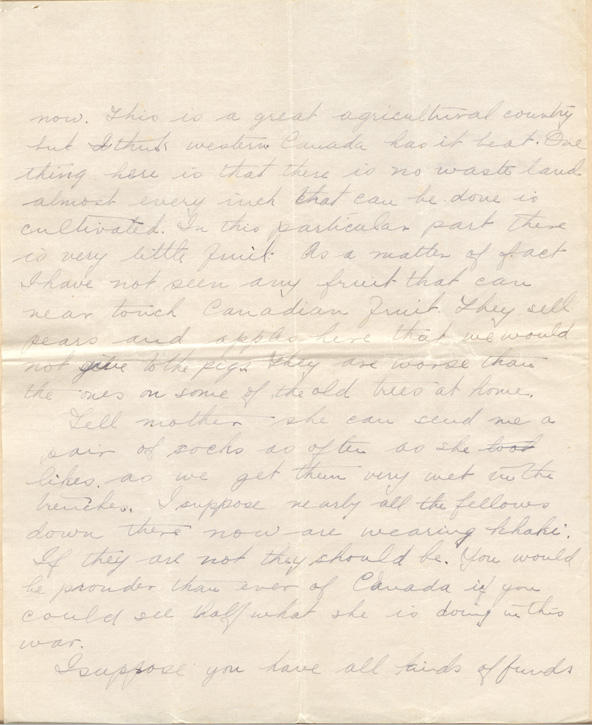 now. This is a great agricultural country
but I think western Canada has it beat. One
thing here is that there is no waste land
almost every inch that can be done is
cultivated. In this particular part there
is very little fruit. As a matter of fact
I have not seen any fruit that can
near touch Canadian fruit. They sell
pears and apples here that we would
not give to the pigs. They are worse than
the ones on some of the old trees at home.
Tell mother she can send me a
pair of socks as often as she
likes. as we get them very wet in the
trenches. I suppose nearly all the fellows
down there now are wearing khaki.
If they are not they should be. You would
be prouder than ever of Canada if you
could see half what she is doing in this
war.
I suppose you have all kinds of funds